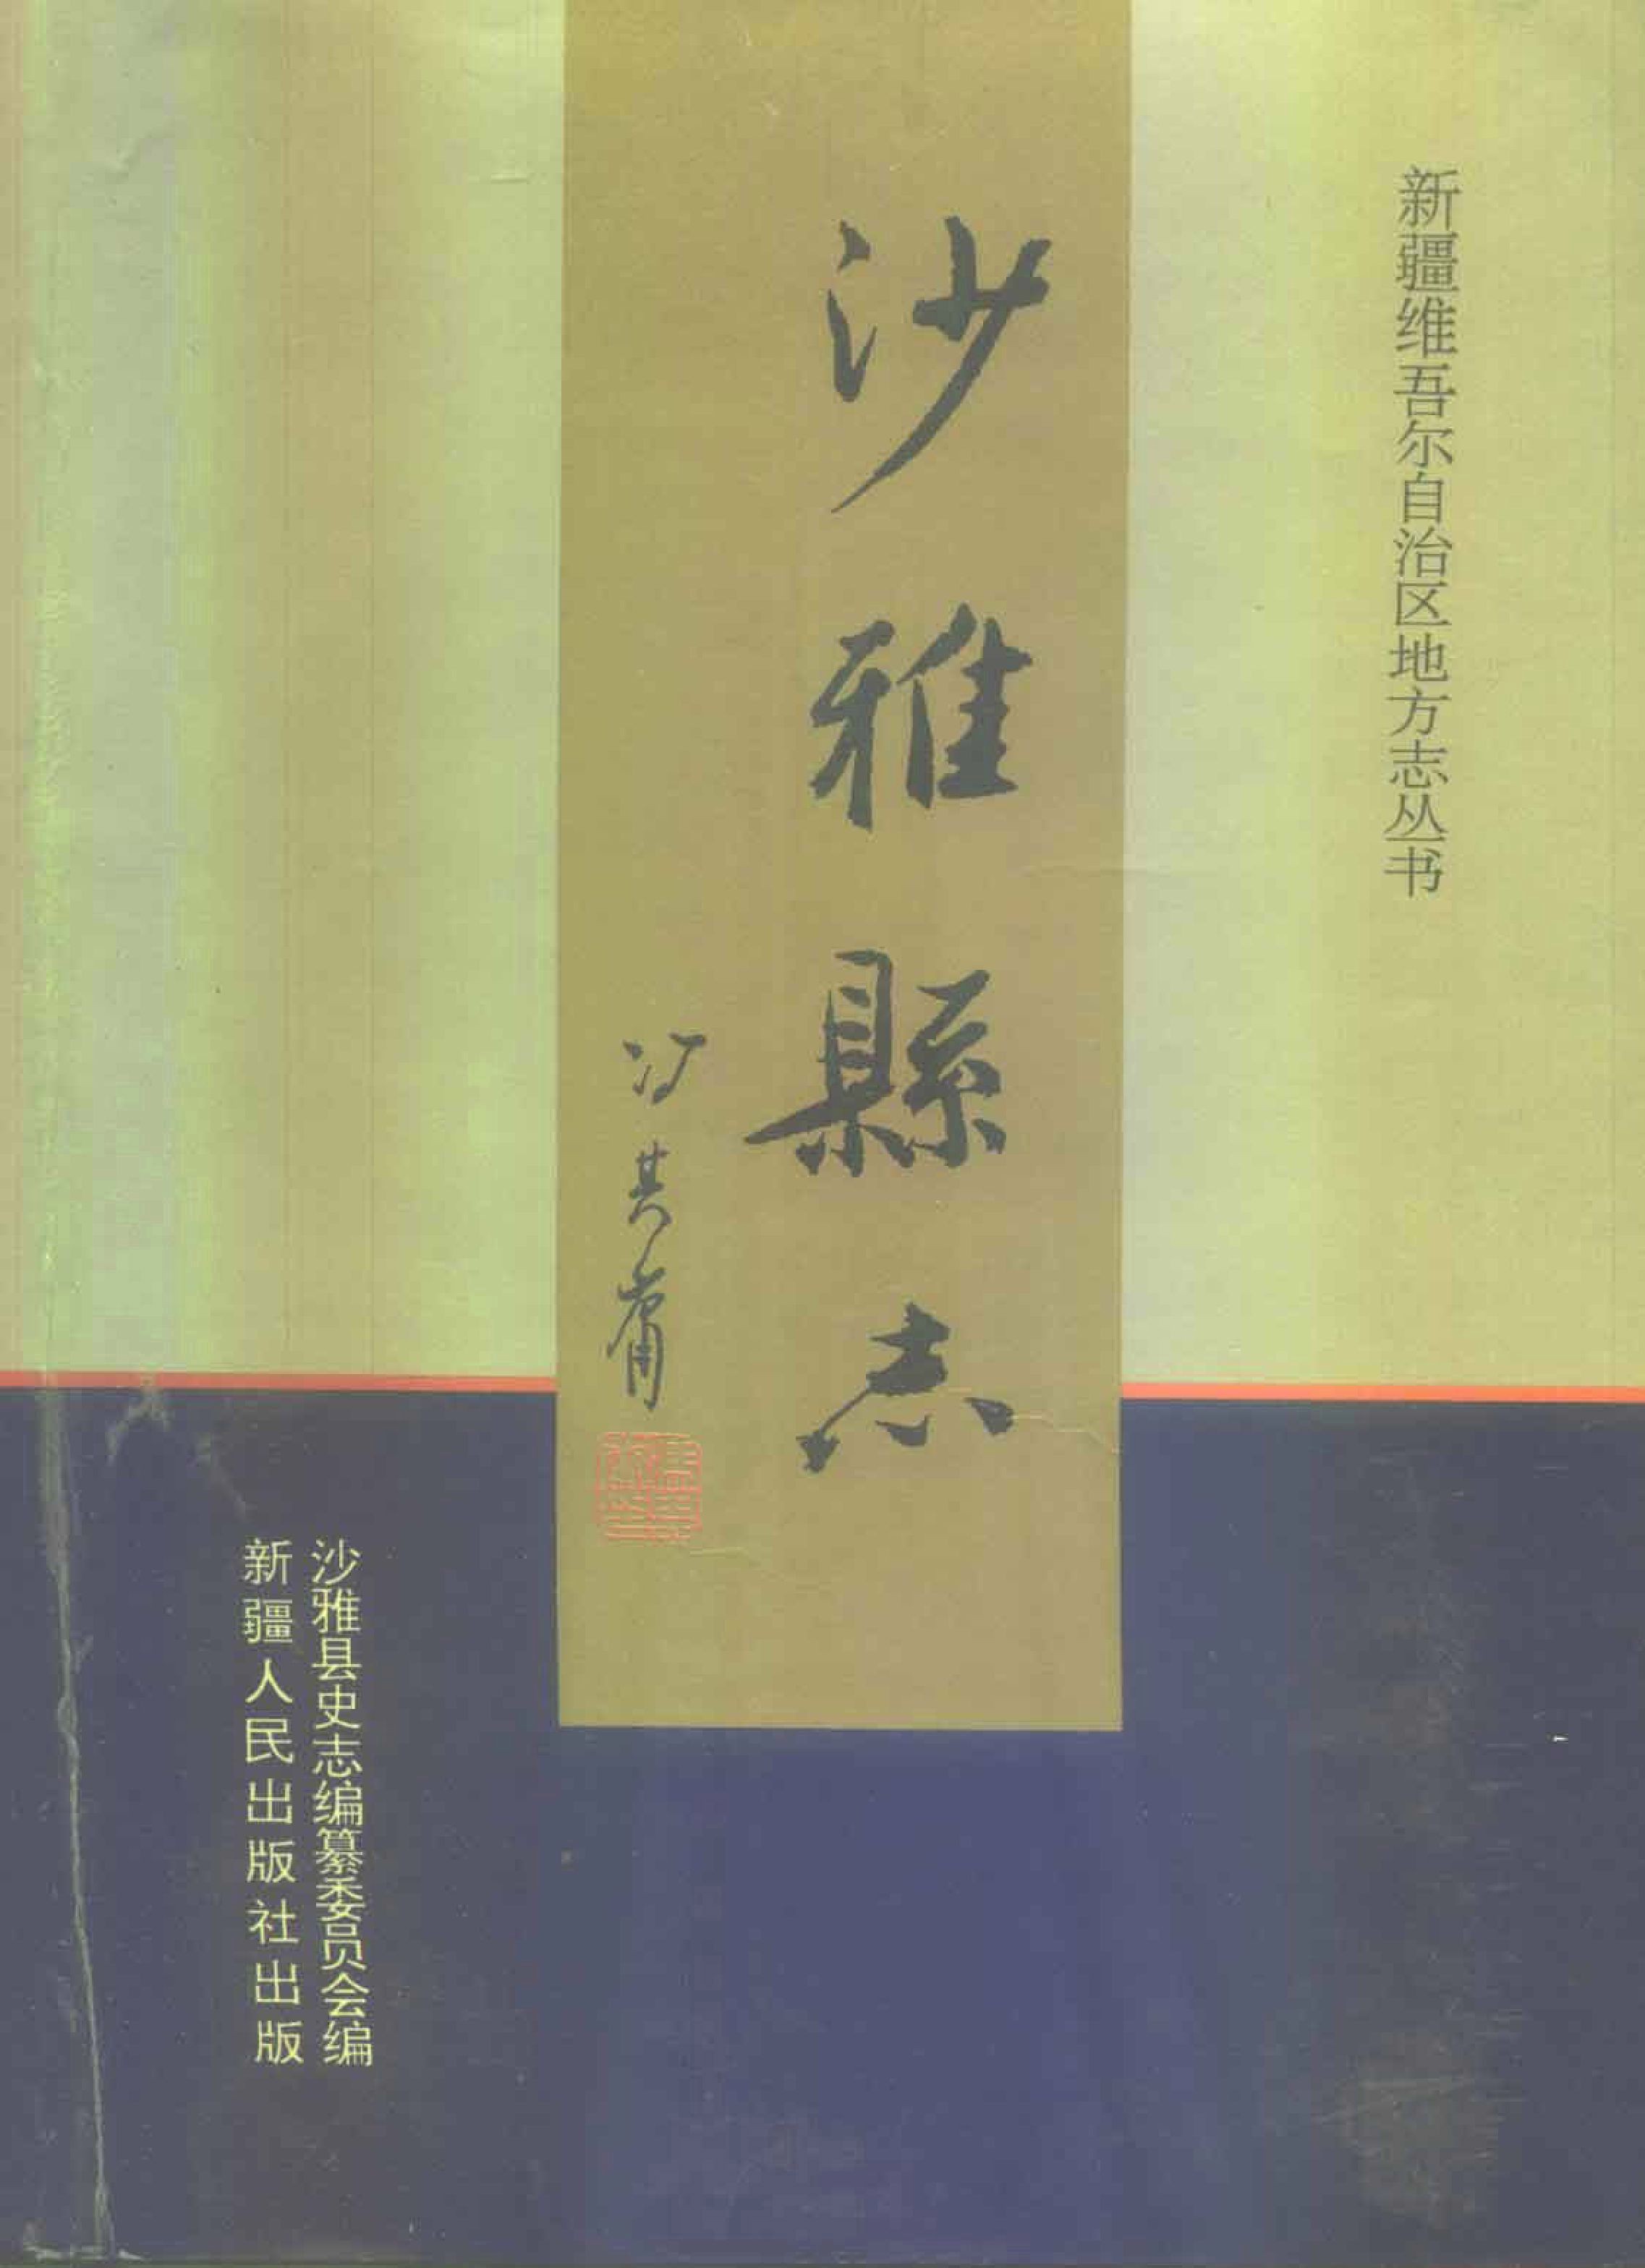 新疆维吾尔自治区地方志丛书
沙雅縣志
冯其庸
沙雅县史志编纂委员会编
新疆人民出版社出版